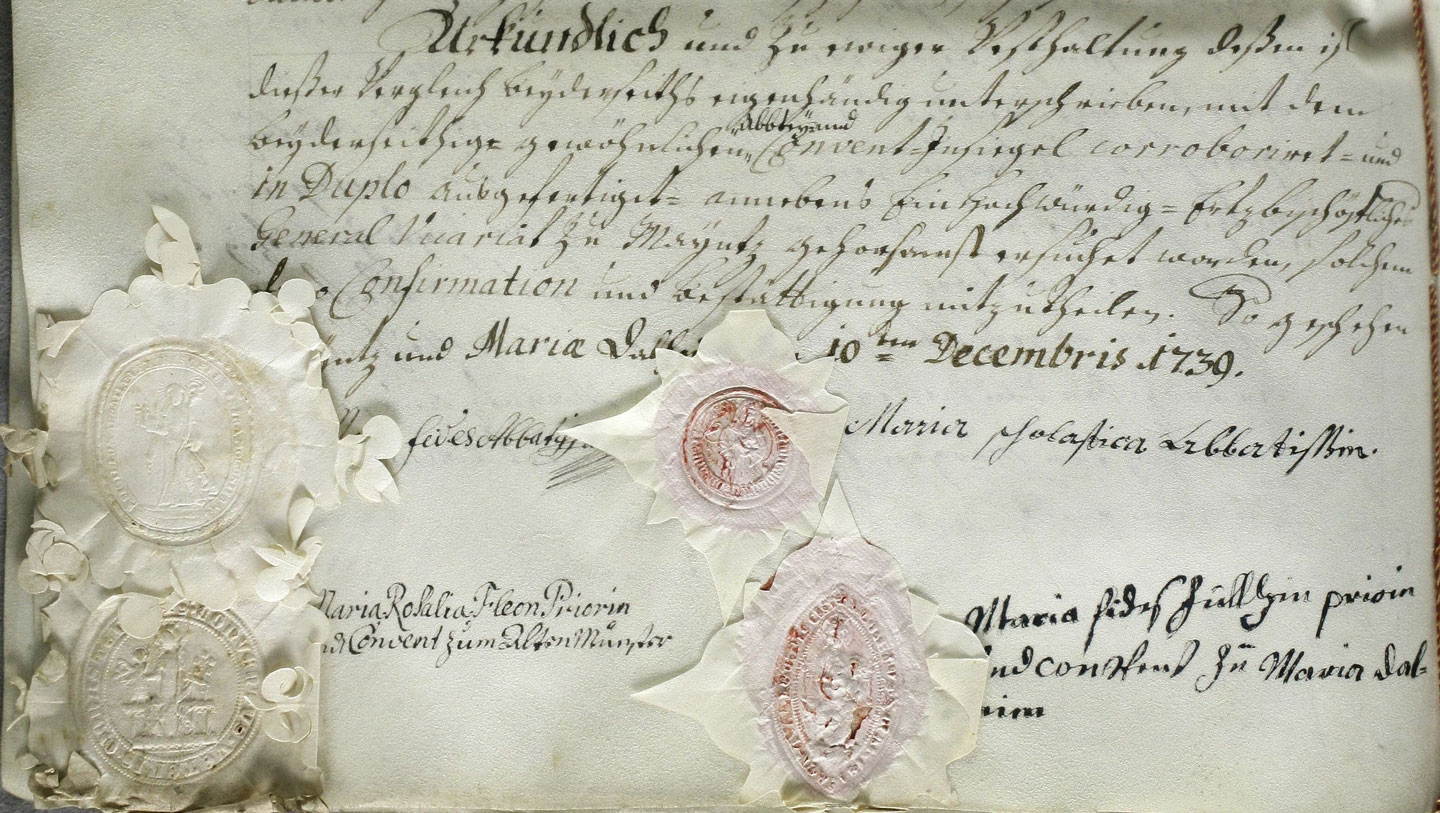 Urkundlich und zu ewiger Vesthaltung deßen ist
dießer Vergleich beyderseiths eigenhändig unterschrieben, mit dem
beyderseithig= gewöhnlichen Abbtey und Convent=Insiegel corroboriret= und
in Duplo ausgefertiget= annebens Ein Hochwürdig= Ertzbischöfliches
General Vicariat zu Mayntz gehorsamst ersuchet worden, solchem
Confirmation und Bestättigung mitzutheilen. So geschehen
und Mariæ 10ten Decembris 1739.
Maria scholastica Abbatissin.
Maria Rosalia Fleon Priorin
Convent zum Alten Münster
Maria fides priorin
und convent zu Maria dal=